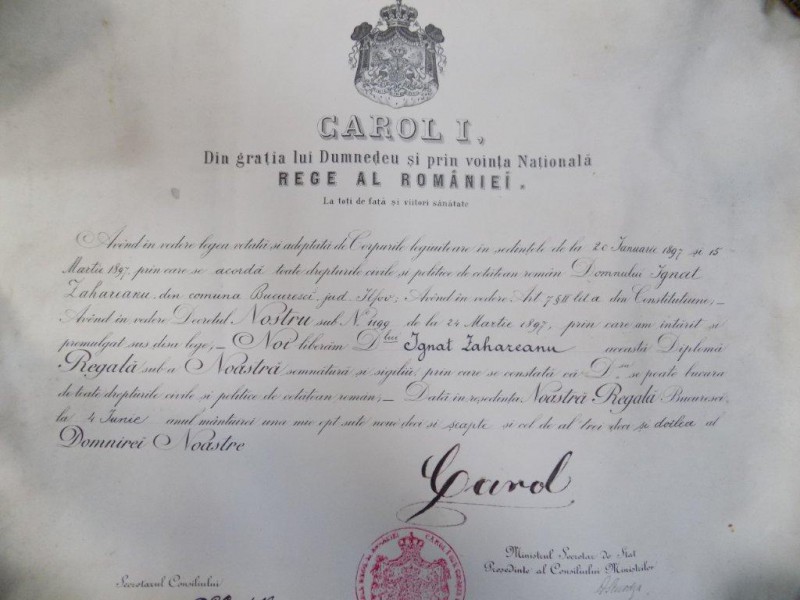 CAROL I,
Din grația lui Dumnedeu și prin voința Natională
REGE AL ROMÂNIEI.
La toti de față și viitori sănătate
Avênd în vedere legea votată si adoptată de Corpurile legiuitoare in sedintele de la 20 Ianuarie 1897 și 15
Martie 1897, prin care se acordă toate drepturile civile si politice de cetătean român Domnului Ignat
Zahareanu din comuna Bucuresci jud. Ilfov; Avênd in vedere Art 7 § II lit a din Constitutiune,—
Avênd in vedere Decretul Nostru sub No. 1199 de la 24 Martie 1897, prin care am intărit si
promulgat sus disa lege,— Noi liberăm Dlui Ignat Zahareanu această Diplomă
Regală sub a Noastră semnătură si sigiliu, prin care se constată că D se poate bucura
de toate drepturile civile si politice de cetătean român;— Dată in resedinta Noastră Regală Bucuresci,
la 4 Iunie anul mântuirei una mie opt sute noue deci si seapte si cel de al trei deci și doilea al
Domnirei Noastre
Carol
CAROL I
Ministrul Secretar de Stat
Presedinte al Consiliului Ministrilor
Secretarul Consiliului